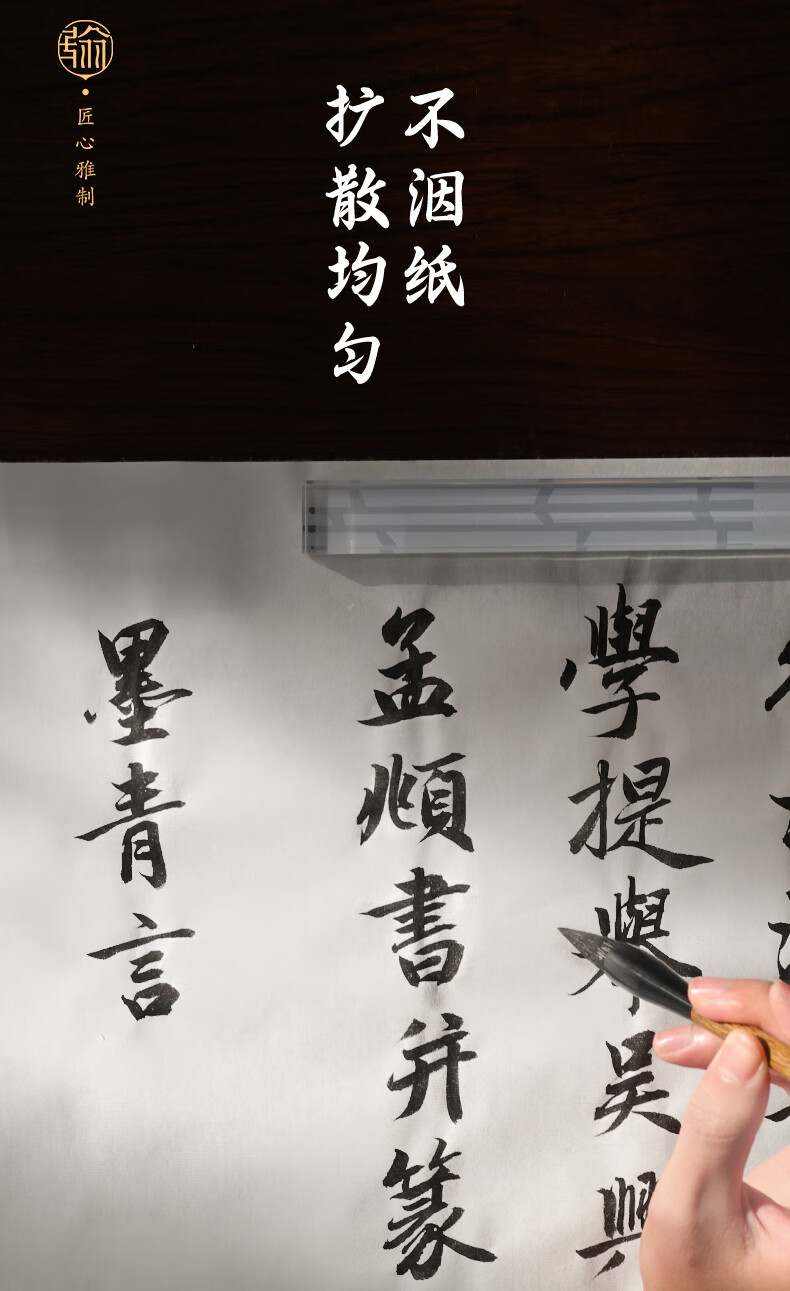 匠心雅制
不洇纸
扩散均匀
學提舉吳興
孟頫書并篆
墨青言